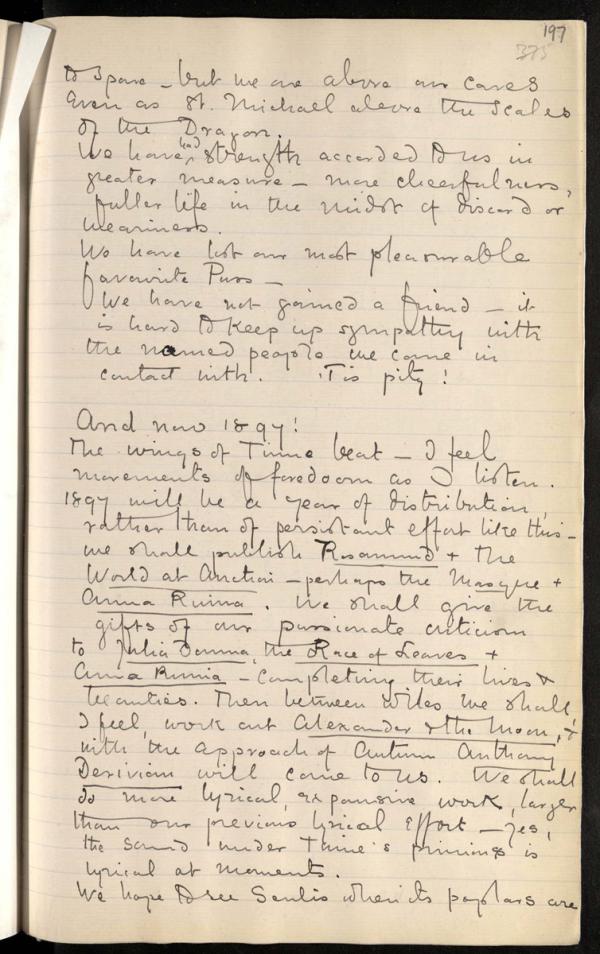 197
375
to spare – but we are above our cares
Even as St. Michael above the Scales
of the Dragon.
We have had strength accorded to us in
greater measure – more cheerfulness,
fuller life in the midst of discord or
weariness.
We have lost our most pleasurable
favourite Puss –
We have not gained a friend – it
is hard to keep up sympathy with
the named people we come in
contact with. 'Tis pity!
And now 1897!
The wings of Time beat – I feel
movements of foredoom as I listen.
1897 will be a year of distribution,
rather than of persistant effort like this –
we shall publish Rosamund + the
World at Auction – perhaps the Masque +
Anna Ruina. We shall give the
gifts of our passionate criticism
to Julia Domna, the Race of Leaves +
Anna Ruina – completing their lives &
beauties. Then between whiles we shall,
I feel, work out Alexander & the Moon, &
with the approach of Autumn Anthony
Derivian will come to us. We shall
do more lyrical, expansive work, larger
than our previous lyrical effort – yes,
the sound under Time's pinions is
lyrical at moments.
We hope to see Senlis when its poplars are